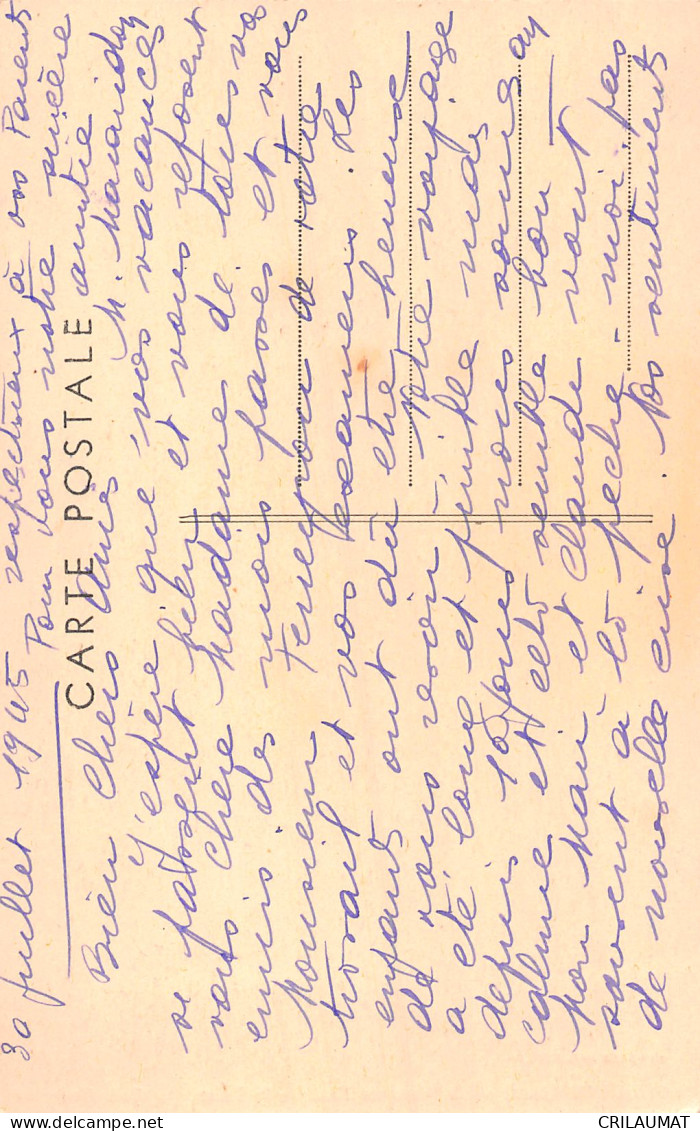 30 juillet 1945 respectueux à vos Parents
Pour vous notre sincère
amitié
M. Maraudon
CARTE POSTALE
Bien Chers Amis
J'espère que vos vacances
se passent bien et vous reposent
vous chère Madame de tous vos
ennuis des mois passés et vous
Monsieur Ferreyrou de votre
travail et vos examens. Les
enfants ont dû être heureux
de vous revoir Notre voyage
a été long et pénible mais
depuis 10 jours nous sommes au
calme et cela semble bon
mon Mari et Claude vont
souvent à la pêche - moi, pas
de nouvelle cuise. Nos sentiments
CRILAUMAT